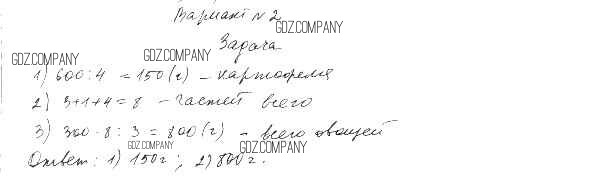 Вариант N 2
GDZ.COMPANY
Задача
GDZ.COMPANY
GDZ.COMPANY
1) 600 : 4 = 150 (г) – картофеля
2) 3+1+4 = 8 – частей всего
3) 300 · 8 : 3 = 800 (г) – всего овощей
GDZ.COMPANY
GDZ.COMPANY
Ответ: 1) 150 г; 2) 800 г.